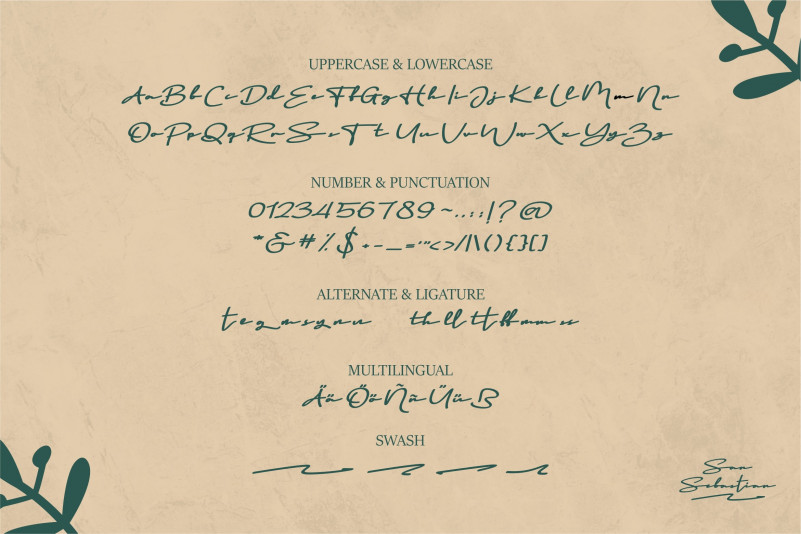 UPPERCASE & LOWERCASE
Aa Bb Cc Dd Ee Ff Gg Hh Ii Jj Kk Ll Mm Nn
Oo Pp Qq Rr Ss Tt Uu Vv Ww Xx Yy Zz
NUMBER & PUNCTUATION
0123456789~..:;!?@
*&#%$+-_='"<>/|\(){}[]
ALTERNATE & LIGATURE
th ll tt ff mm ss
MULTILINGUAL
Ää Öö Ññ Üü ß
SWASH
San
Sebastian